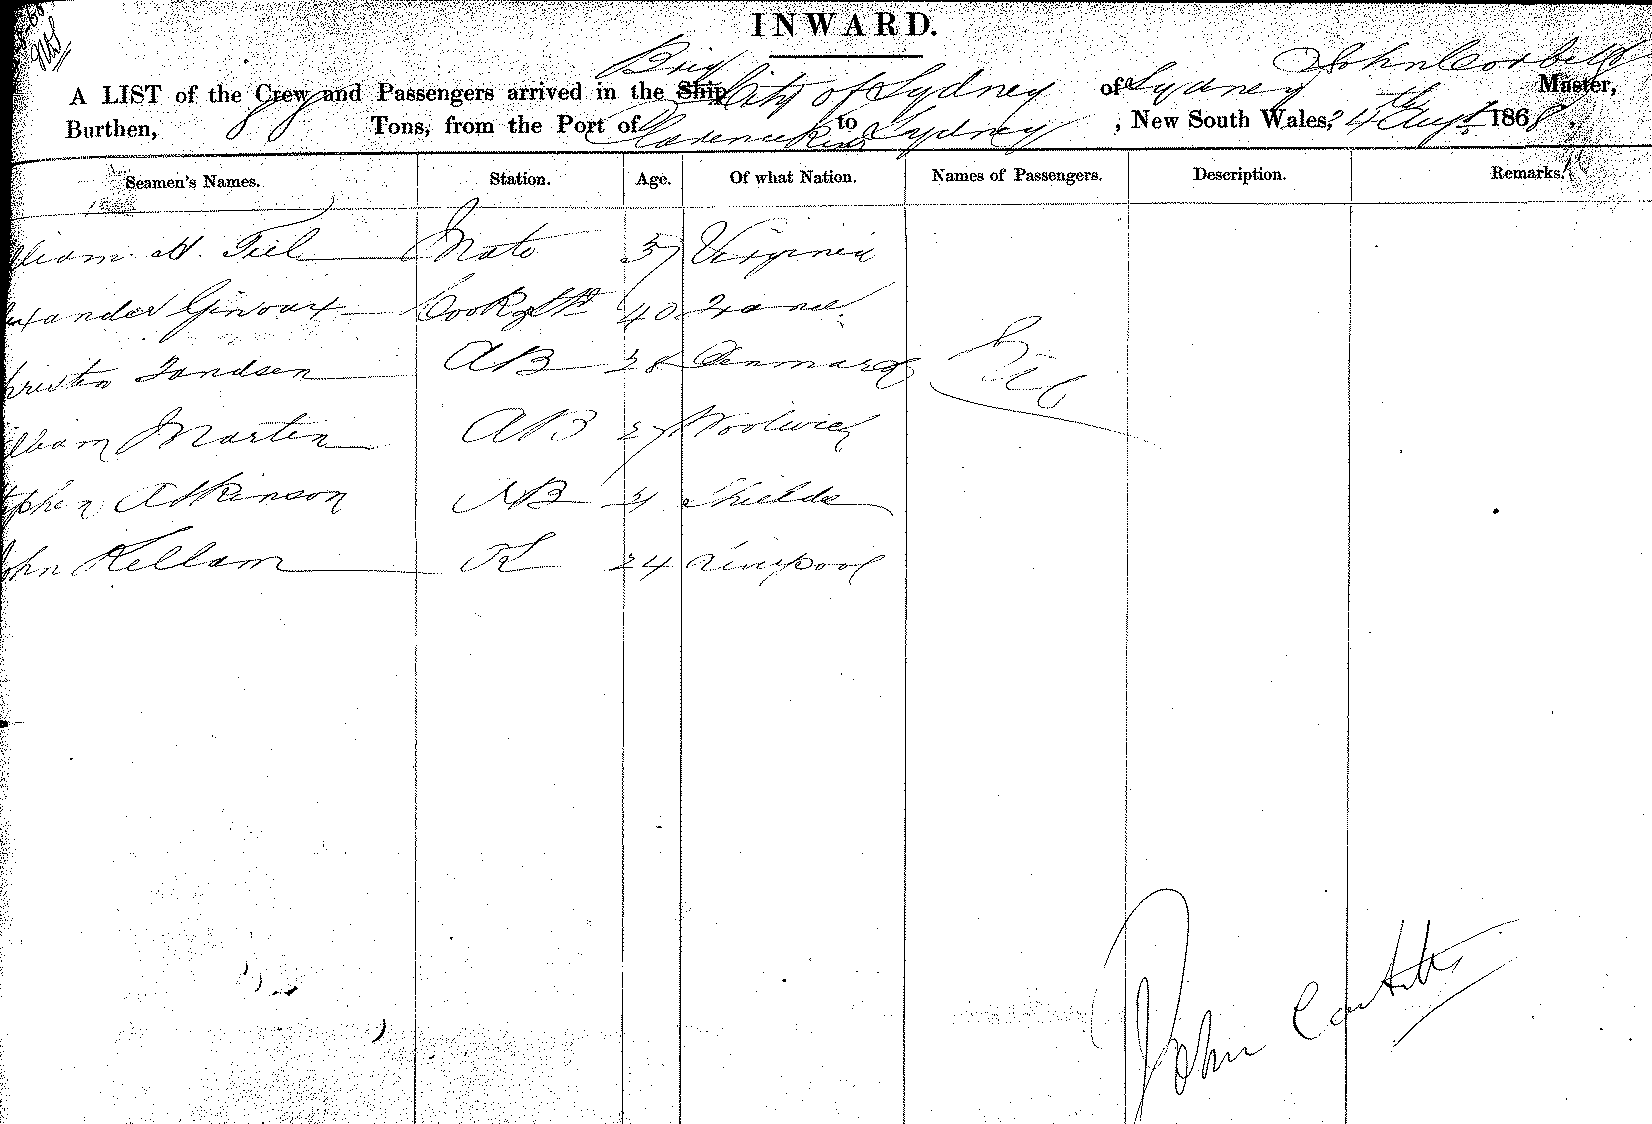 INWARD.
Brig John Corbett
A LIST of the Crew and Passengers arrived in the Ship City of Sydney of Sydney Master,
Burthen, 99 Tons, from the Port of Clarence River to Sydney , New South Wales, 24th Augst 1868.
Seamen's Names. Station. Age. Of what Nation. Names of Passengers. Description. Remarks.
lliam H. Teel Mate 37 Virginia
xander Cook & Std 40 France
hristen AB 28 Denmark
lliam Martin AB 27 Woolwich
ephen Atkinson AB Shields
John Kellam 24 Liverpool
John